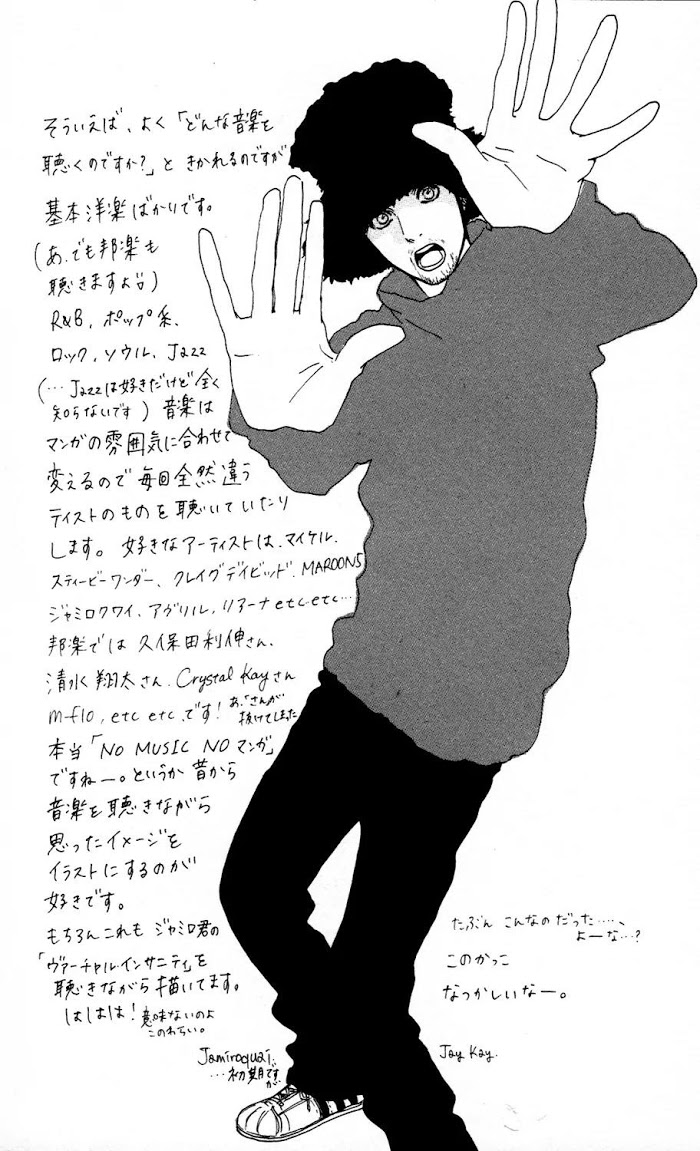 そういえば、よく「どんな音楽を
聴くのですか?」と きかれるのですが
基本洋楽ばかりです。
(あ、でも邦楽も
聴きますよ)
R&B、ポップ系、
ロック、ソウル、Jazz
(…Jazzは好きだけど全く
知らないです) 音楽は
マンガの雰囲気に合わせて
変えるので毎回全然違う
テイストのものを聴いていたり
します。好きなアーティストは、マイケル、
スティービーワンダー、クレイグデイビッド、MAROON5
ジャミロクワイ、アヴリル、リアーナ etc etc…
邦楽では 久保田利伸さん、
清水翔太さん、Crystal Kayさん
m-flo, etc etc.です! あ、「さん」が
抜けてしまった
本当「NO MUSIC NO マンガ」
ですねー。というか 昔から
音楽を聴きながら
思ったイメージを
イラストにするのが
好きです。
もちろんこれも ジャミロ君の
「ヴァーチャル・インサニティ」を
聴きながら描いてます。
ははは! 意味ないのよ
このわらい。
Jamiroquai
…初期ですが
たぶん こんなのだった……、
よーな…?
このかっこ
なつかしいなー。
Jay Kay.